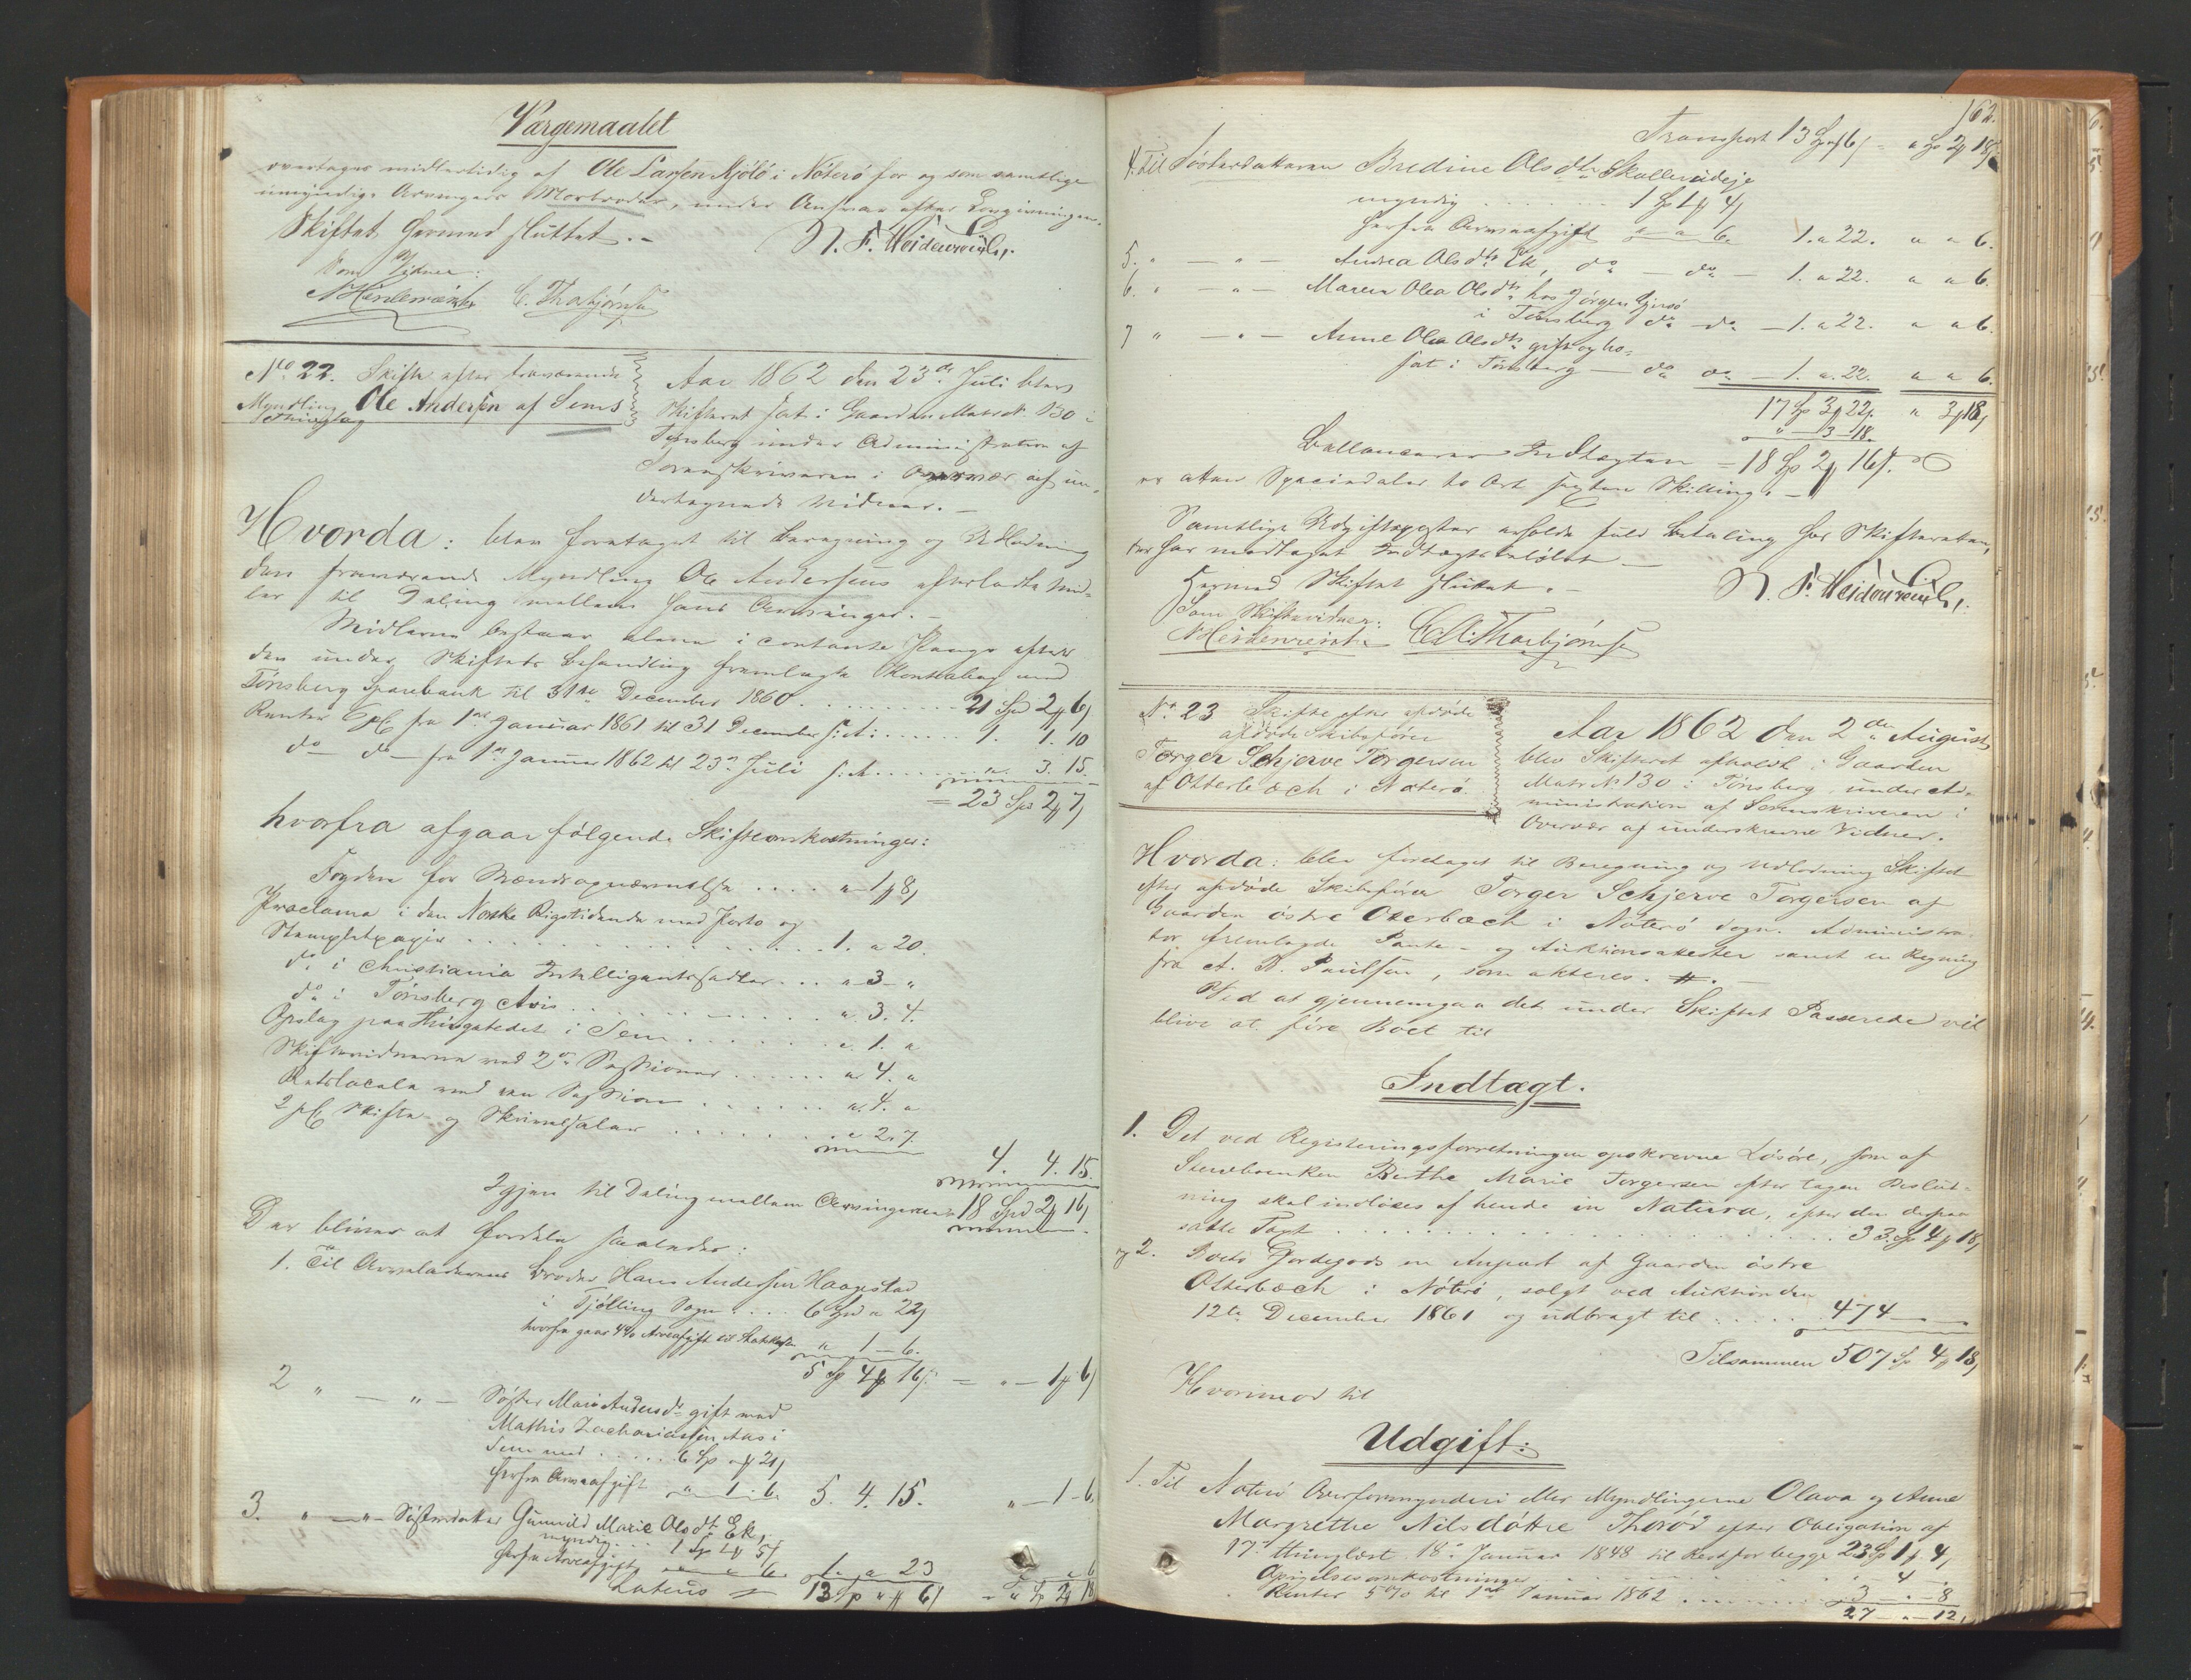 Værgemaalet
overtages midlertidig af Ole Larsen Mjölö i Nöterö for og som samtlige
umyndige Arvingers Morbroder, under Ansvar efter Lovgivningen.
Skiftet hermed sluttet. -
N. F. Heidenreich.
Som Vidner:
NHeidenreich C. Thorbjörnsen
No 22. Skifte efter fraværende
Myndling Ole Andersen af Sems
Thinglag
Aar 1862 den 23de Juli blev
Skifteret sat i Gaarden Matr. N. 130 i
Tönsberg under Administration af
Sorenskriveren i Overvær af un-
dertegnede Vidner. -
Hvorda: blev foretaget til Beregning og Udlodning
den fraværende Myndling Ole Andersens efterladte Mid-
ler til Deling mellem hans Arvinger. -
Midlerne bestaar alene i contante Penge efter
den under Skiftets Behandling fremlagte Contrabog med
Tönsberg Sparebank til 31te December 1860 . . . . 21 Spd 2 # 6 /
Renter 6 pC. fra 1ste Januar 1861 til 31 December s. A. . . . . 1. 1. 10
do do - fra 1ste Januar 1862 til 23de Juli s. A. . . . . " 3. 15.
= 23 Spd 2 # 7 /
hvorfra afgaar fölgende Skifteomkostninger:
Fogden for Mændsopnævnelse . . . . " 1 # 8 /
Proclama i den Norske Rigstidende med Porto og
Stempletpapir . . . . 1. " 20.
do i Christiania Intelligentssedler . . . " 3 - "
do i Tönsberg Avis . . . . " 3. 4.
Opslag paa Thingstedet i Sem . . . . " 1. "
Skiftevidnerne ved 2de Sessioner . . . . " 4. "
Retslocale ved een Session . . . . " 4. "
2 pC. Skifte- og Skriversalær . . . . " 2. 7.
4. 4. 15
Igjen til Deling mellem Arvingerne 18 Spd 2 # 16 /
Der bliver at fordele saaledes:
1. Til Arveladerens Broder Hans Andersen Haagestad
i Tjölling Sogn . . . . 6 Spd " 22 /
hvorfra gaar 4% Arveafgift til Statskassen " 1 - 6.
5 Sp 4 # 16 / = " - 1 # 6 /
2 " — " - Söster Marie Andersdr gift med
Mathis Zachariassen Aas i
Sem med . . . . . 6 Sp " # 21 /
herfra Arveafgift " 1 - 6. 5. 4. 15. " - 1 - 6.
3. " — " - Sösterdatter Gunnild Marie Olsdtr Ek,
myndig . . . 1 Sp 1 # 5 /
herfra Arveafgift " " 6. 1. " 23 " " 6
Lateris 13 Sp " # 6 / = " Sp 2 # 18
162.
Transport 13 Sp " # 6 / = " Sp 2 # 18 /
4. Til Sösterdatteren Bredine Olsdtr Skallevoldeje
myndig . . . . . 1 Sp 1 # 4 /
herfra Arveafgift " " 6. 1. " 22. " " 6.
5. " — " — Andrea Olsdtr Ek, do — do — 1. " 22. " " 6.
6. " — " — Maren Olea Olsdtr hos Jörgen
i Tönsberg do — do — 1. " 22. " " 6.
7 " — " — Anne Olea Olsdtr gift og bo-
sat i Tönsberg — do do — 1. " 22. " " 6.
17 Sp 3 # 22 /. " 3 # 18 /
" 3 - 18.
Ballancerer Indtægten = 18 Sp 2 # 16 /.
er atten Speciedaler to Ort sexten Skilling. -
Samtlige Udgiftsposter erholde fuld Betaling hos Skifteretten,
der har modtaget Indtægtsbelöbet. -
Hermed Skiftet sluttet. -
N. F. Heidenreich.
Som Skiftevidner:
NHeidenreich Thorbjörnsen
No 23 Skifte efter afdöde
afdöde Skibsförer
Torger Schjerve Torgersen
af Otterbech i Nöterö
Aar 1862 den 2den August
blev Skifteret afholdt i Gaarden
Matr. N 130 i Tönsberg under Ad-
ministration af Sorenskriveren i
Overvær af underskrevne Vidner.
Hvorda: blev foretaget til Beregning og Udlodning Skiftet
efter afdöde Skibsförer Torger Schjerve Torgersen af
Gaarden östre Oterbech i Nöterö Sogn. Administra-
tor fremlagde Pante- og Auktionsattester samt en Regning
fra A. B. Paulsen, som akteres. #. -
Ved at gjennemgaa det under Skiftet Passerede vil
blive at före Boet til
Indtægt.
1. Det ved Registeringsforretningen opskrevne Lösöre, som af
Stervboenken Berthe Marie Torgersen efter tagen Beslut-
ning skal indlöses af hende in Natura, efter den derpaa
satte Taxt . . . . . 33 Sp 4 # 18 /
og 2. Boets Jordegods en Anpart af Gaarden östre
Otterbech i Nöterö, solgt ved Auktion den
12te December 1861 og udbragt til . . . . . 474 — — —
Tilsammen 507 Sp 4 # 18 /
Hvorimod til
Udgift:
1. Til Nöterö Overformynderi eller Myndlingerne Olava og Anne
Margrethe Nilsdöttre Thoröd efter Obligation af
17de thinglæst 18de Januar 1848 til Rest for begge 23 Sp 1 # 4 /
Opsigelsesomkostninger . . . . " 4 "
Renter 5% til 1ste Januar 1862 . . . . 3 — " — 8
27 — " — 12 /